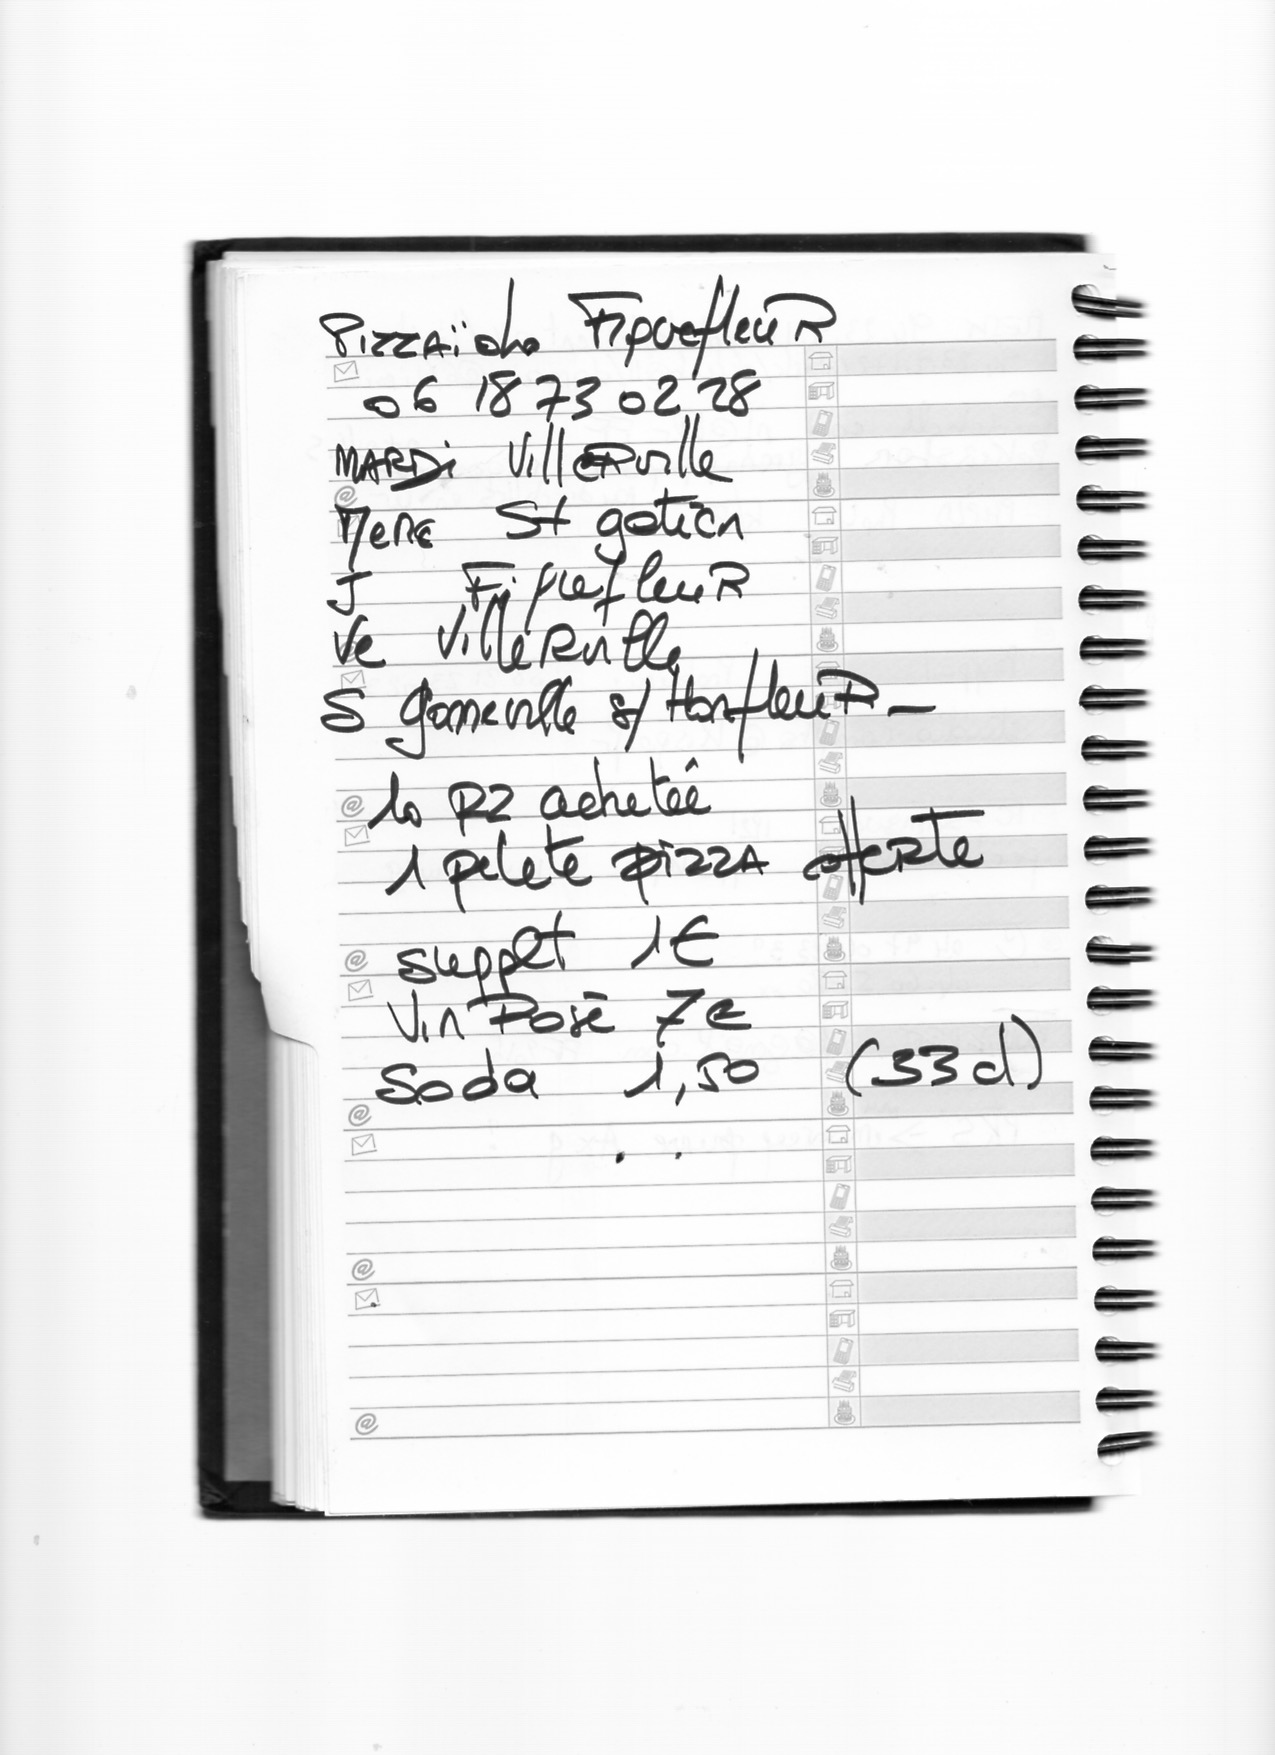 PIZZAïolo FIquefleuR
06 18 73 02 28
MARDi VillERville
MeRc St gatien
J FiquefleuR
Ve VilleRville
S Gonneville s/ HonfleuR_
10 PZ achetée
1 petite pizzA offeRTe
supplt 1€
Vin Rosé 7€
Soda 1,50 (33 cl)